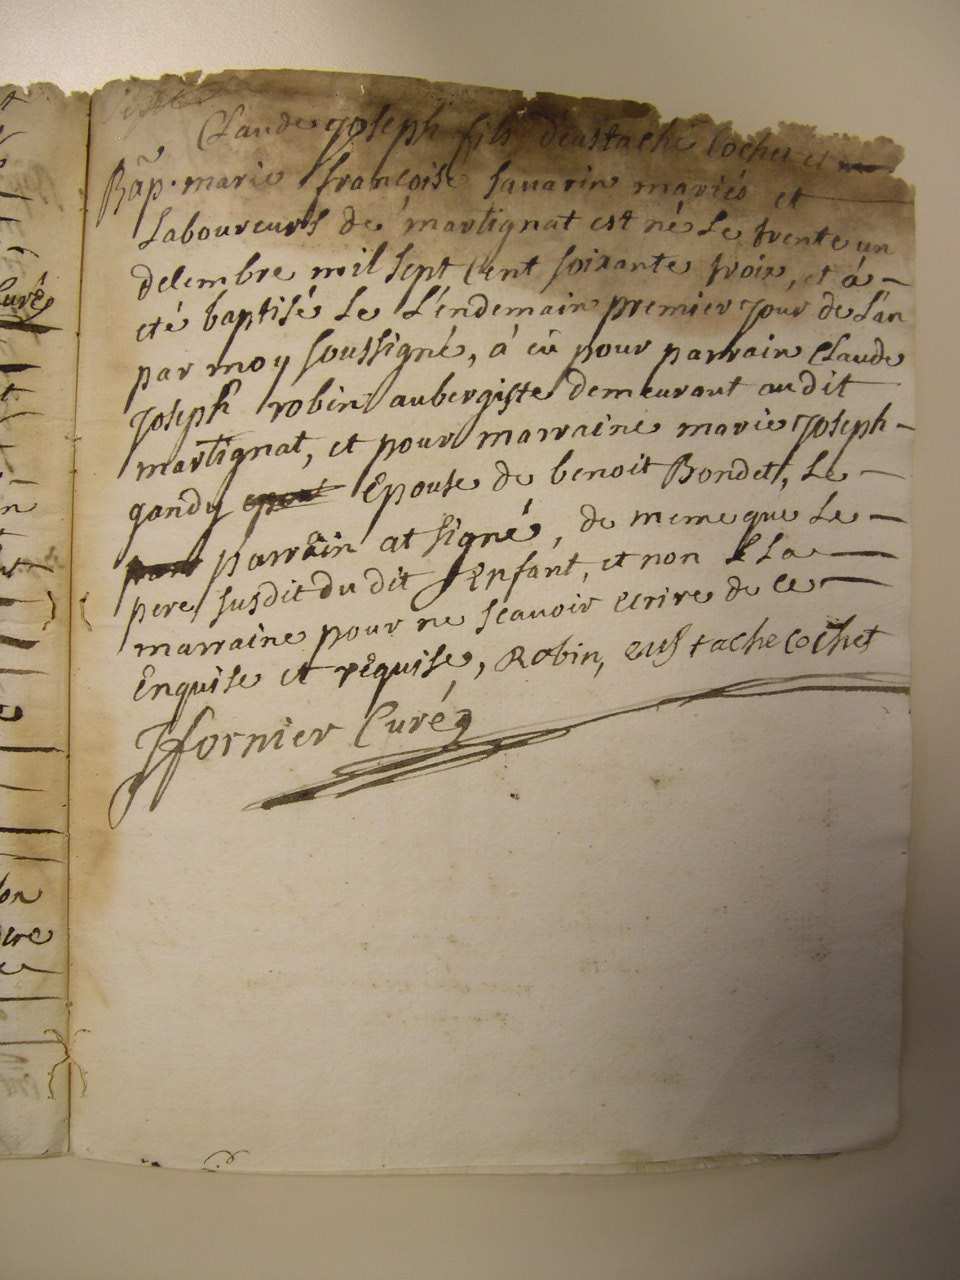 Claude Joseph fils d'eustache Cochet et
Bap. marie françoise savarin mariés et
Laboureurs de martignat est né Le trente un
decembre mil sept Cent soixante trois, et á
eté baptisé Le L'endemain premier jour de L'an
par moy soussigné, á eû pour parrain Claude
Joseph robin aubergiste demeurant audit
martignat, et pour marraine marie Joseph
gandy Epouse de benoit Bondet, Le
parrain at signé, de meme que Le
pere susdit du dit Enfant, et non La
marraine pour ne scauoir ecrire de ce
Enquise et requise, Robin, eustache cochet
Jfornier Curé
Curé
on